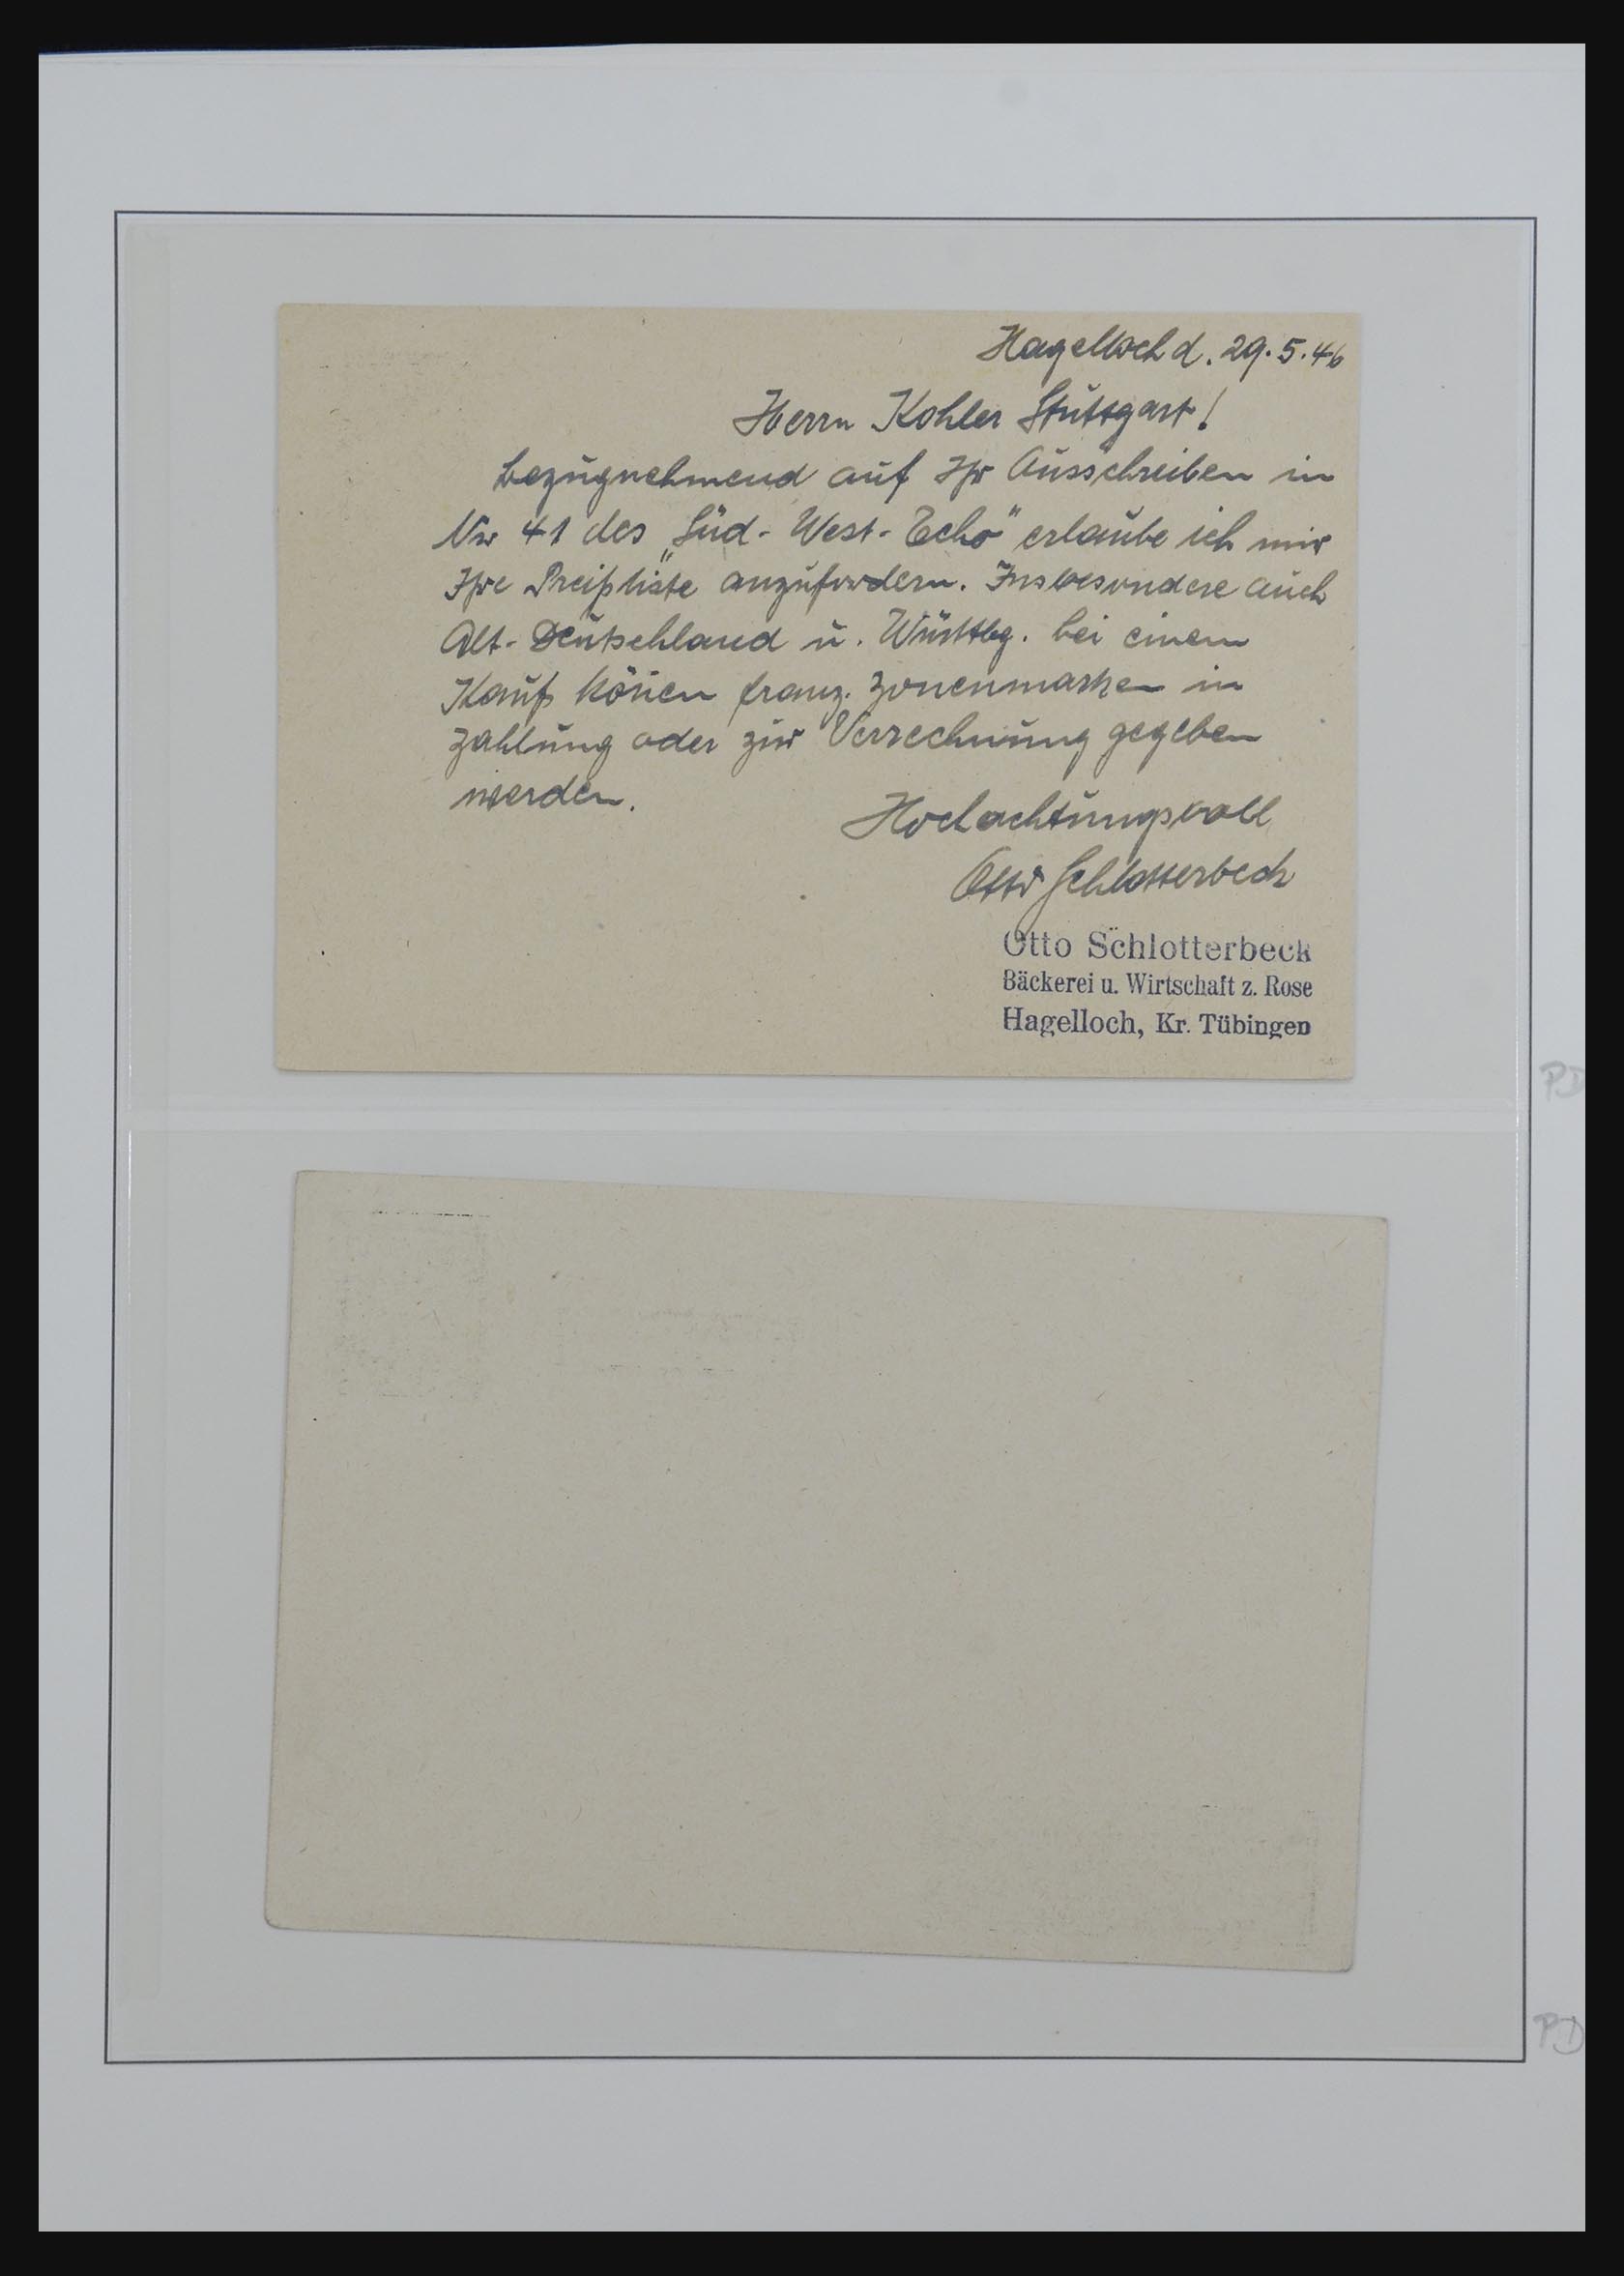 Hagelloch d. 29.5.46
Herrn Kohler Stuttgart!
Bezugnehmend auf Ihr Ausschreiben in
Nr 41 des „Süd-West-Echo" erlaube ich mir
Ihre Preißliste anzufordern. Insbesondere auch
Alt-Deutschland u. Württbg. bei einem
Kauf könen franz. Zonenmarken in
Zahlung oder zur Verrechnung gegeben
werden.
Hochachtungsvoll
Otto Schlotterbeck
Otto Schlotterbeck
Bäckerei u. Wirtschaft z. Rose
Hagelloch, Kr. Tübingen
PD
PD